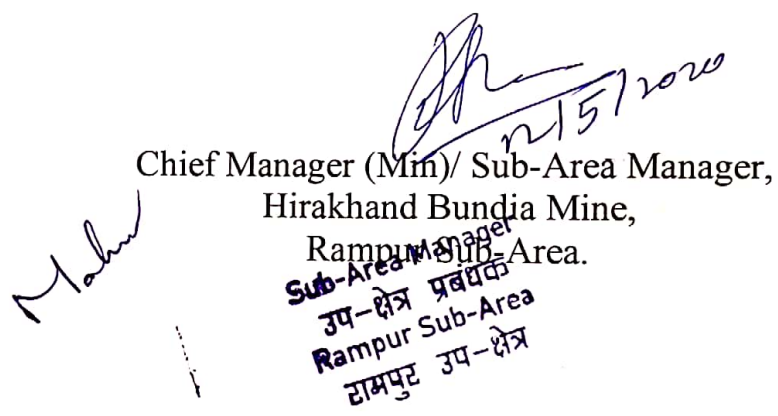 12/5/2020
Chief Manager (Min)/ Sub-Area Manager,
Hirakhand Bundia Mine,
Rampur Sub-Area.
Sub-Area Manager
उप-क्षेत्र प्रबंधक
Rampur Sub-Area
रामपुर उप-क्षेत्र